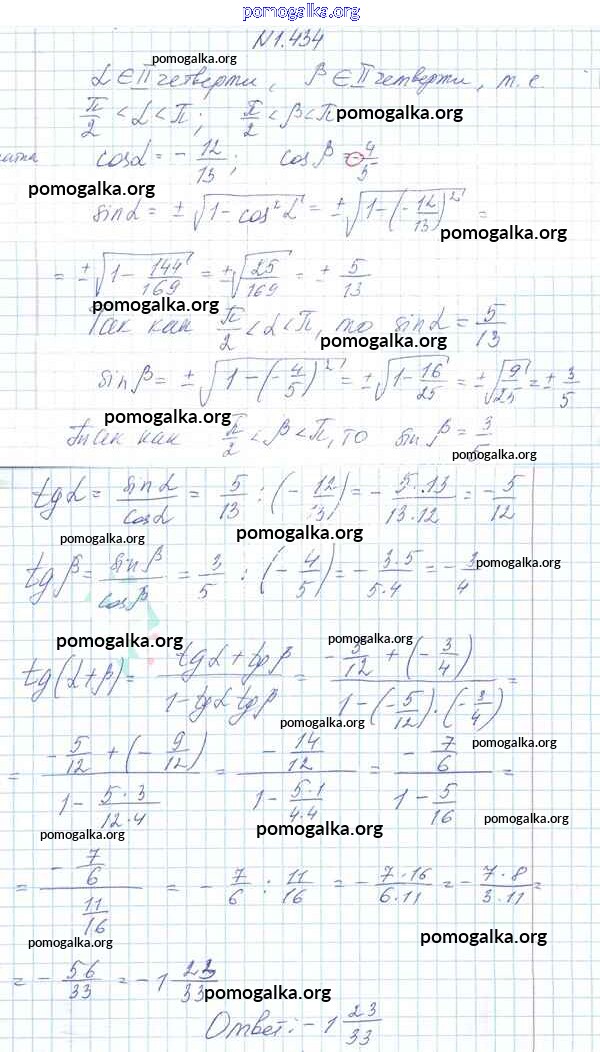 pomogalka.org
N1.434
pomogalka.org
α ∈ II четверти, β ∈ II четверти, т. е.
π/2 < α < π; π/2 < β < π
pomogalka.org
cosα = - 12/13; cosβ = - 4/5
pomogalka.org
sinα = ± √(1 - cos²α) = ± √(1 - (-12/13)²) =
pomogalka.org
= ± √(1 - 144/169) = ± √(25/169) = ± 5/13
pomogalka.org
Так как π/2 < α < π, то sinα = 5/13
pomogalka.org
sinβ = ± √(1 - (-4/5)²) = ± √(1 - 16/25) = ± √(9/25) = ± 3/5
pomogalka.org
Так как π/2 < β < π, то sinβ = 3/
pomogalka.org
tgα = sinα/cosα = 5/13 : (-12/13) = - 5·13/13·12 = - 5/12
pomogalka.org
pomogalka.org
tgβ = sinβ/cosβ = 3/5 : (-4/5) = - 3·5/5·4 = - 3/4
pomogalka.org
pomogalka.org
tg(α+β) = (tgα + tgβ)/(1 - tgα tgβ) = (-5/12 + (-3/4))/(1 - (-5/12)·(-3/4)) =
pomogalka.org
pomogalka.org
= (-5/12 + (-9/12))/(1 - 5·3/12·4) = (-14/12)/(1 - 5·1/4·4) = (-7/6)/(1 - 5/16) =
pomogalka.org
pomogalka.org
pomogalka.org
= (-7/6)/(11/16) = - 7/6 : 11/16 = - 7·16/6·11 = - 7·8/3·11 =
pomogalka.org
pomogalka.org
= - 56/33 = - 1 23/33
pomogalka.org
Ответ: - 1 23/33